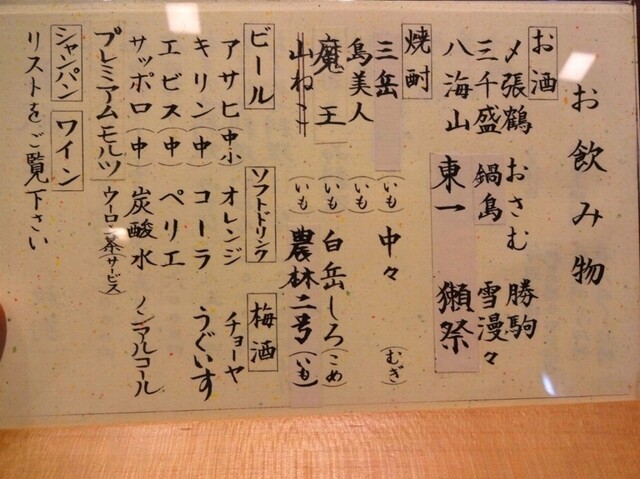 お飲み物
お酒
〆張鶴 おさむ 勝駒
三千盛 鍋島 雪漫々
八海山 東一 獺祭
焼酎
三岳(いも) 中々(むぎ)
島美人(いも)
魔王(いも) 白岳しろ(こめ)
山ねこ(いも) 農林二号(いも)
ビール
アサヒ(中小)
キリン(中)
エビス(中)
サッポロ(中)
プレミアムモルツ
ソフトドリンク
オレンジ
コーラ
ペリエ
炭酸水
ウーロン茶(サービス)
梅酒
チョーヤ
うぐいす
ノンアルコール
シャンパン ワイン
リストをご覧下さい